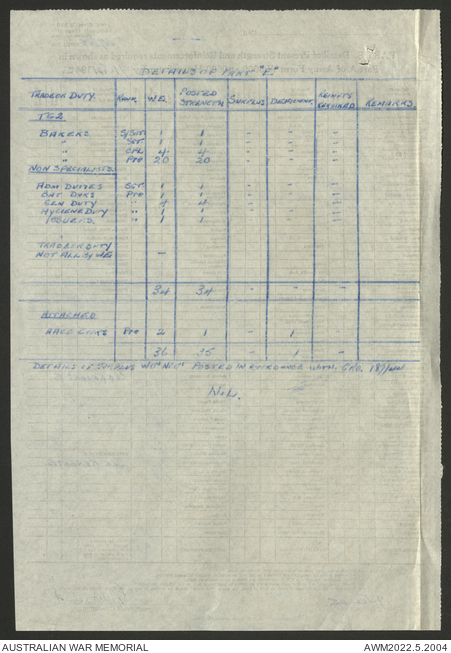 DETAILS OF PART "E"
TRADE OR DUTY. RANK. W.E. POSTED STRENGTH SURPLUS DEFICIENCY REINFTS REQUIRED REMARKS.
TG2.
BAKERS S/SGT. 1 1 - -
" SGT. 1 1 - -
" CPL 4 4 - -
" PTE 20 20 - -
NON SPECIALISTS.
ADM DUTIES SGT. 1 1 - -
BAT. DVRS PTE 1 1 - -
GEN DUTY " 4 4 - -
HYGIENE DUTY " 1 1 - -
ISSUERS " 1 1 - -
TRADE OR DUTY
NOT ALL. BY W.E. -
34 34 - - -
ATTACHED
AACC COOKS PTE 2 1 - 1
36 35 - 1 -
DETAILS OF SURPLUS POSTED IN ACCORDANCE WITH. GRO.
NIL.
AUSTRALIAN WAR MEMORIAL AWM2022.5.2004